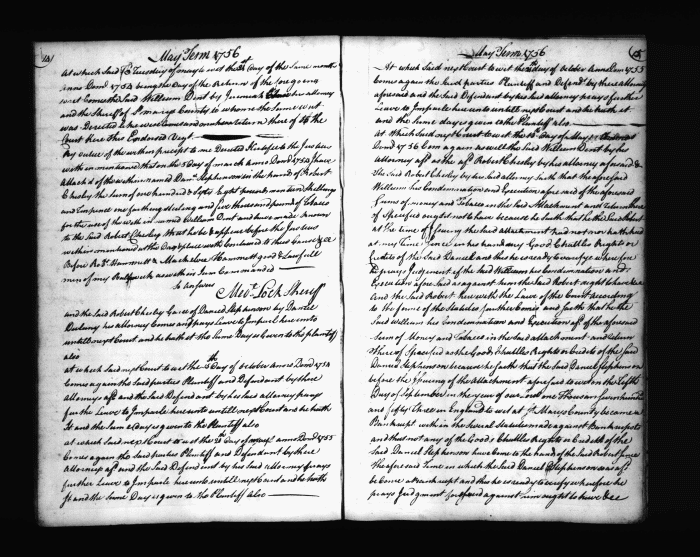 14
May Term 1756
At which Said Tuesday of to wit the Day of the Same month
Anno Domi 175 being the Day of the Return of the foregoing
writ Comes the Said William Dent by his attorney
and the Sheriff of St marys County to whom the Same writ
was Directed to here
Court here Thus Endorsed Vizt
By virtue of the within precept to me Directed I Certifie to the Justices
within mentioned that on the 5 Day of march Anno Domi 1754 I have
Attach'd of the within named Danl Stephenson in the hands of Robert
Chesley the Sum of one hundred & fifty Eight pounds nineteen Shillings
and Sterling and Six thousand pounds of Tobacco
for the use of the within named William Dent and have made known
to the Said Robert Chesley that he be & appear before the Justices
within mentioned at the Day & place with Contained to Shew Cause &c
Before Robt Hammett & Hammett good & Lawfull
men of my Bailiwick as within I am Commanded
So answers
Lock Sheriff
and the Said Robert Chesley Garnee of Daniel Stephenson by Daniel
Dulany his attorney Comes and prays Leave to Imparle hereunto
untill next Court and he hath it the Same Day is Given to the plaintiff
also
at which Said next Court to wit the Day of October Anno Domi 1754
Comes again the Said parties Plaintiff and Defendant by there
Attorneys afd and the Said Defendant by his Said attorney prays
further Leave to Imparle hereunto untill next Court and he hath
It and the Same Day is given to the Plaintiff also
at which Said next Court to wit the Day of Anno Domi 1755
Comes again the Said parties Plaintiff and Defendant by there
Attorneys afd and the Said Defendant by his Said Attorney prays
further Leave to Imparle here unto untill next Court and he hath
It and the Same Day is given to the Plaintiff also
May Term 1756
15
At which Said next Court to wit the Day of October Anno Domi 1755
Comes again the Said parties Plaintiff and Defendt by there Attorneys
aforesaid and the Said Defendant by his Said attorney prays further
Leave to Imparle hereunto untill next Court and he hath it
and the Same day is given to the Plaintiff also
At which Said next Court to wit the Day of May
Domi 1756 Com again as well the Said William Dent by his
Attorney afd as the afd Robert Chesley by his attorney aforesd &
the Said Robert Chesley by his Said attorney Saith that the aforesaid
William his Condemnation and Execution aforesaid of the aforesaid
Sums of money and Tobacco in the Said Attachment and Return there
of Specified ought not to have because he Saith that he the Said Robert
at the Time of Issuing the Said attachment had not nor hath had
at any Time Since in his hands any Goods Chattles Rights or
Credits of the Said Daniel and this he is ready to verify wherefore
he prays Judgement if the Said William his Condemnation and
Execution aforesaid against him the Said Robert ought to have &c
And the Said Robert here with the Leave of the Court according
to the forme of the Statutes further Comes and Saith that he the
Said William his Condemnation and Execution afd of the aforesaid
Sum of Money and Tobacco in the Said Attachment and Return
thereof Specified as the Goods Chattles Rights or Credits of the Said
Daniel Stephenson because he Saith that the Said Daniel Stephenson
before the Issuing of the Attachment aforesaid to wit on the fifth
Day of September in the year of our Lord one Thousand Seven hundred
and fifty Three in England to wit at St Marys County became a
Bankrupt within the Several Statutes made against Bankrupts
and that not any of the Goods Chattles Rights or Credits of the
Said Daniel Stephenson have Come to the hands of the Said Robert Since
the aforesaid time on which the Said Daniel Stephenson was afd
became a Bankrupt and this he is ready to verify wherefore he
prays Judgment if against him ought to have &c